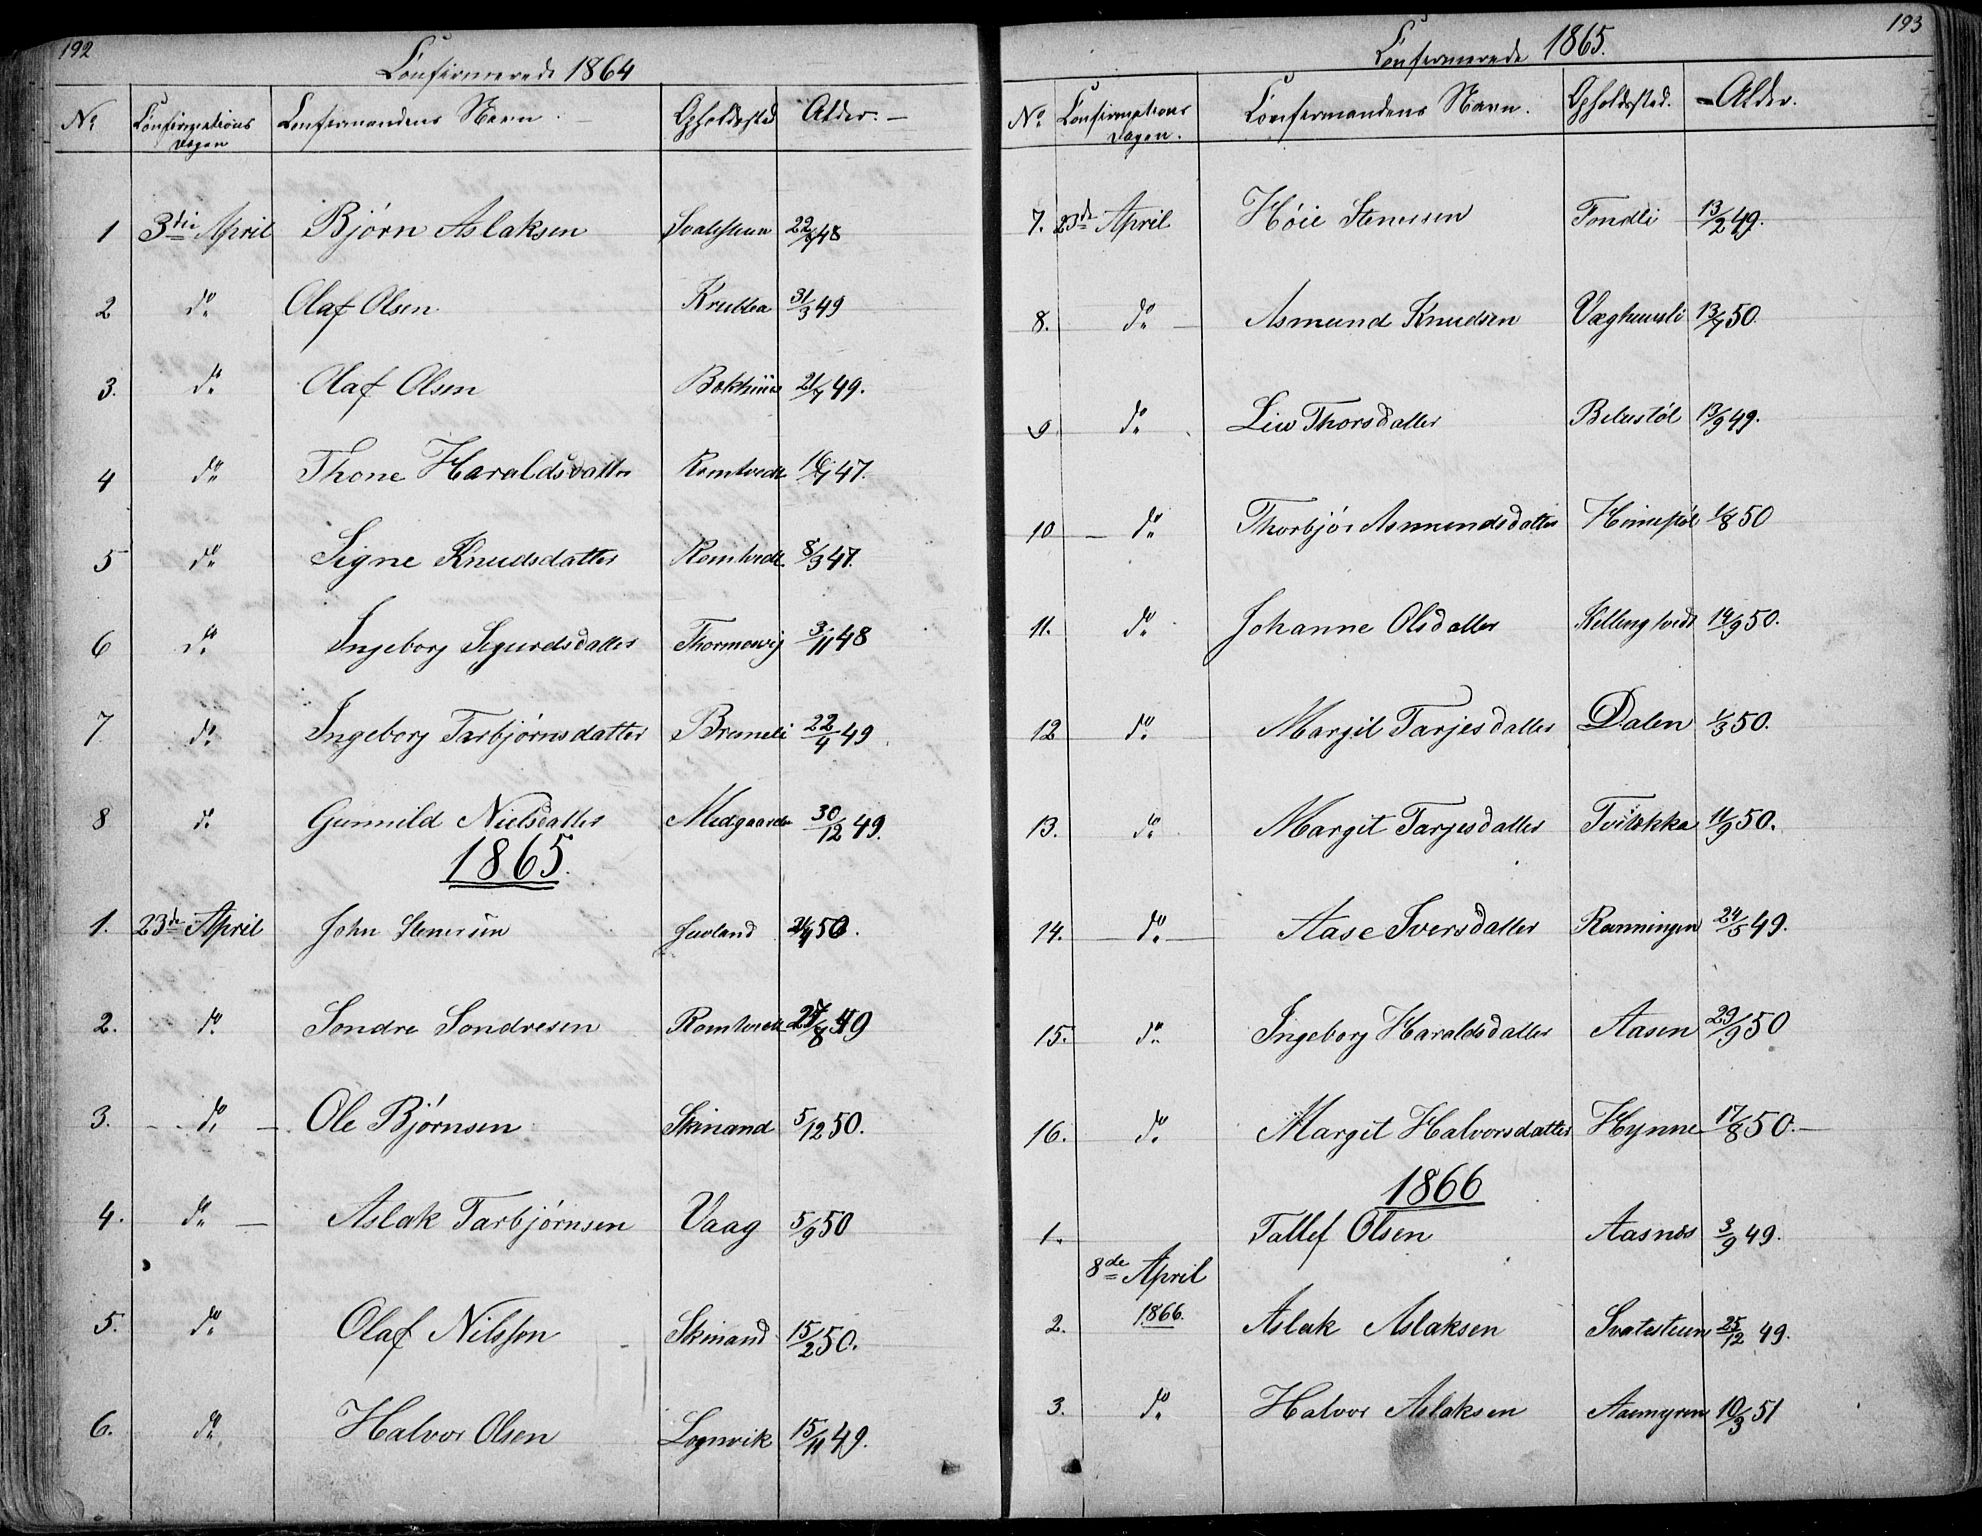 192
Confirmerede 1864
No Confirmations Dagen Confirmandens Navn. Opholdssted Alder.
1 3die April Bjørn Aslaksen Svalesteen 22/8 48
2 do Olaf Olsen Krultea 31/3 49
3. do Olaf Olsen Bokhuus 21/7 49.
4 do Thone Haraldsdatter Romtvedt 47.
5 do Signe Knudsdatter Romtvedt 8/3 47.
6 do Ingeborg Sigurdsdatter Thormosvig 3/11 48
7 do Ingeborg Tarbjørnsdatter Bruneli 22/4 49
8 do Gunnild Nielsdatter Midgaarden 30/12 49.
1865.
1. 23de April John Stenersen Juvland 50.
2. do Sondre Sondresen Romtvedt 49
3. do Ole Bjørnsen Skinand 5/12 50.
4. do Aslak Tarbjørnsen Vaag 5/9 50
5. do Olaf Nilsson Skinand 15/2 50.
6. do Halvor Olsen Lognvik 15/11 49.
193
Confirmerede 1865.
No Confirmations Dagen. Confirmandens Navn. Opholdssted. Alder.
7. 23de April Høie Stenersen Tondli 13/2 49.
8. do Asmund Knudsen Væghuusli 13/7 50.
9. do Liv Thorsdatter Belustøl 13/9 49.
10 do Thorbjør Asmundsdatter 1/8 50
11. do Johanne Olsdatter Killingtvedt 14/9 50.
12 do Margit Tarjesdatter Dalen 1/3 50.
13. do Margit Tarjesdatter Tveitokka 11/9 50.
14. do Aase Iversdatter Rønningen 24/5 49.
15. do Ingeborg Haraldsdatter Aasen 29/9 50
16. do Margit Halvorsdatter Hynne 17/8 50.
1866
1. Tallef Olsen Aasnæs 3/9 49.
8de April
2. 1866. Aslak Aslaksen Svalesteen 25/12 49.
3. do Halvor Aslaksen Aamyren 10/3 51